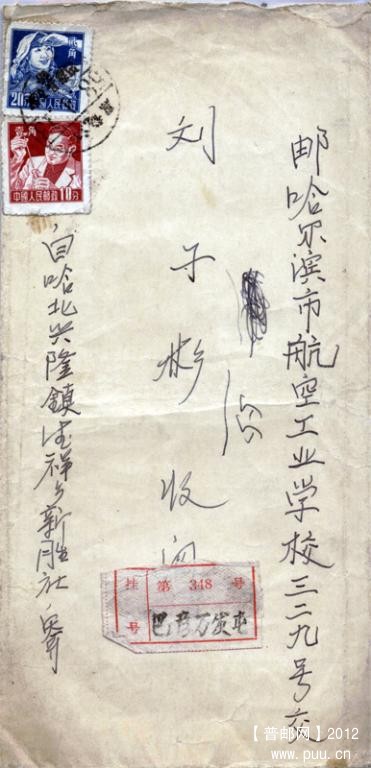 邮哈尔滨市航空工业学校三二九号交
刘子彬收
自哈北兴隆鎮德祥乡新胜社
贰角
20分
中國人民郵政
壹角
中國人民郵政
10分
挂 第 348 号
号 巴彦万发屯
【普邮网】2012
www.puu.cn